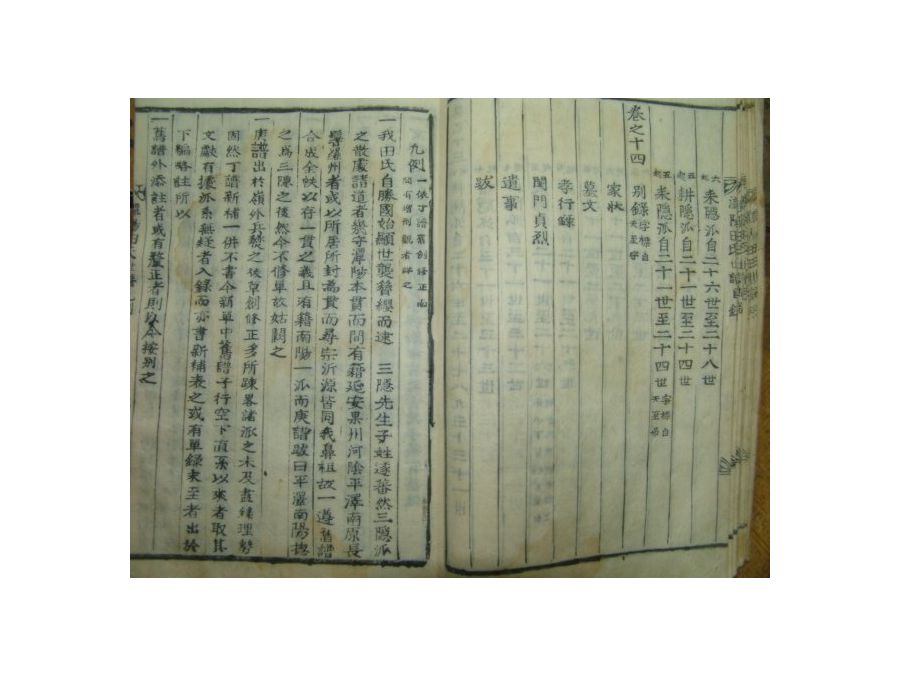 六起 耒隱派自二十六世至二十八世
五起 耕隱派自二十一世至二十四世
起 耒隱派自二十一世至二十四世 字標自天至
別錄 字標自天至
卷之十四
家狀
墓文
孝行錄
閨門貞烈
遺事
跋
凡例 一依丁譜舊例
間有增刪觀者詳之
一我田氏自勝國始顯世襲簪纓而逮 三隱先生子姓遂蕃然三隱派
之散處諸道者幾守潭陽本貫而間有籍延安果州河陰平澤南原長
鬐羅州者或以所居所封爲貫而尋宗泝源皆同我鼻祖故一遵舊譜
合成全帙以存一貫之義且有籍南陽一派而庚譜跋曰平澤南陽
之爲三陳之後然今不修單故姑闕之
一庚譜出於嶺外兵燹之後草創修正多所踈畧諸派之未及盡緒理勢
固然丁譜新補一倂不書今新單中舊譜子行空下直系以來者取其
文獻有據派系無紕者入錄而亦書新補表之或有單錄未至者出於
下騙略註所以
一舊譜外添註者或有釐正者則以今按別之